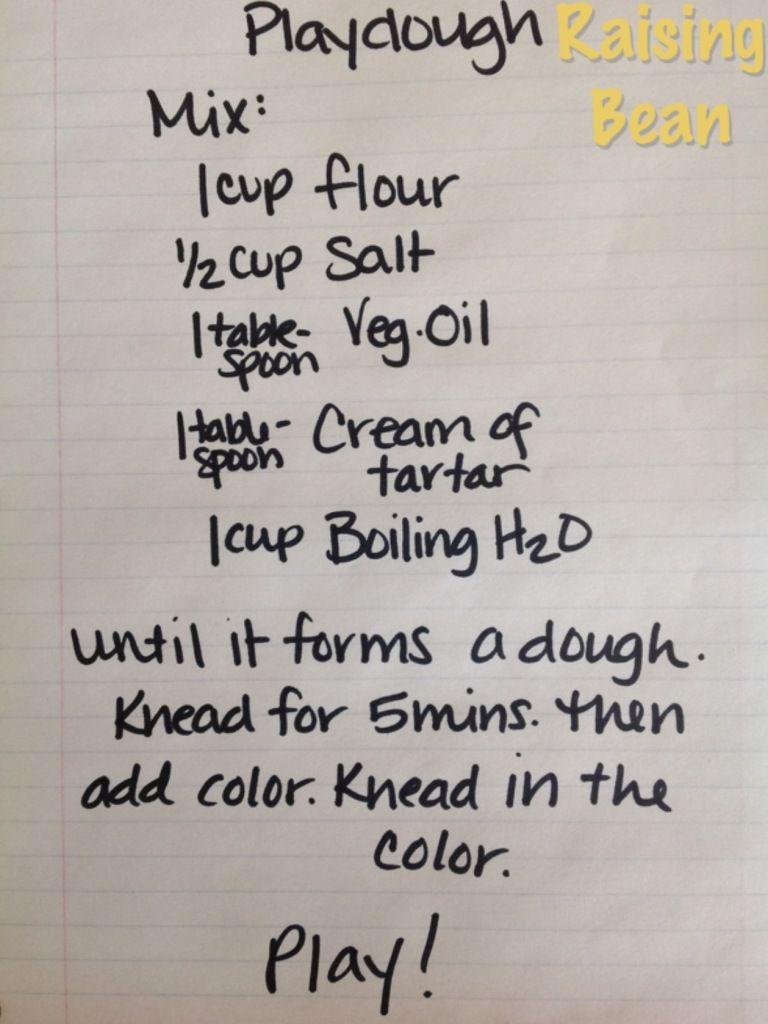 Playdough
Raising
Bean
Mix:
1 cup flour
1/2 cup Salt
1 table- Veg. Oil
spoon
1 table- Cream of
spoon tartar
1 cup Boiling H2O
until it forms a dough.
Knead for 5 mins. then
add color. Knead in the
color.
Play!